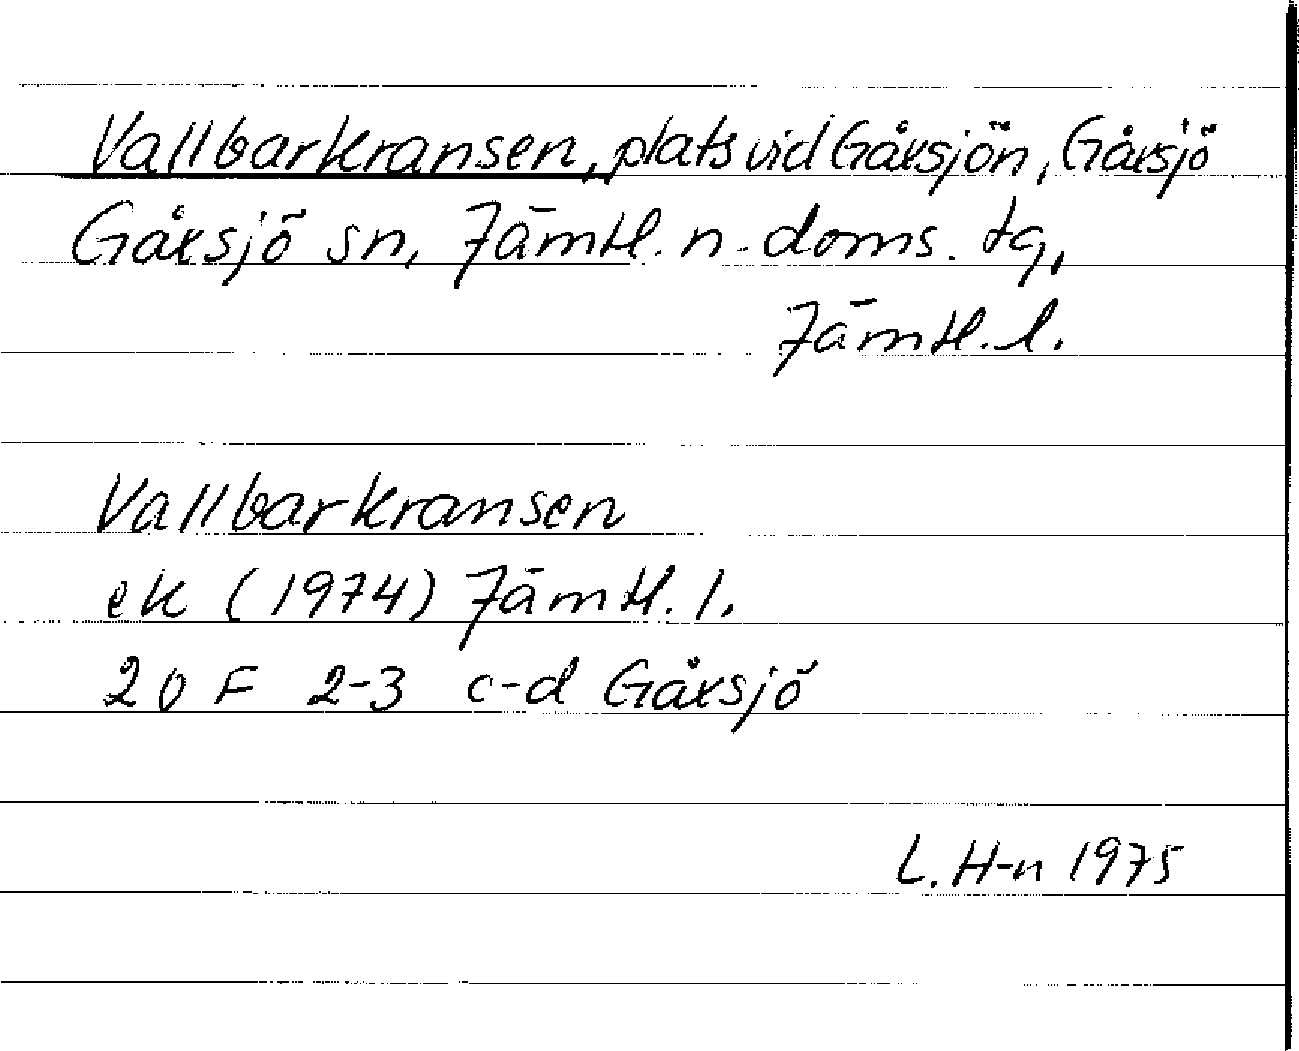 Vallbarkransen, plats vid Gåxsjön, Gåxsjö
Gåxsjö sn, Jämtl. n. doms. tg,
Jämtl. l.
Vallbarkransen
ek (1974) Jämtl. l.
20 F 2-3 c-d Gåxsjö
L. H-n 1975